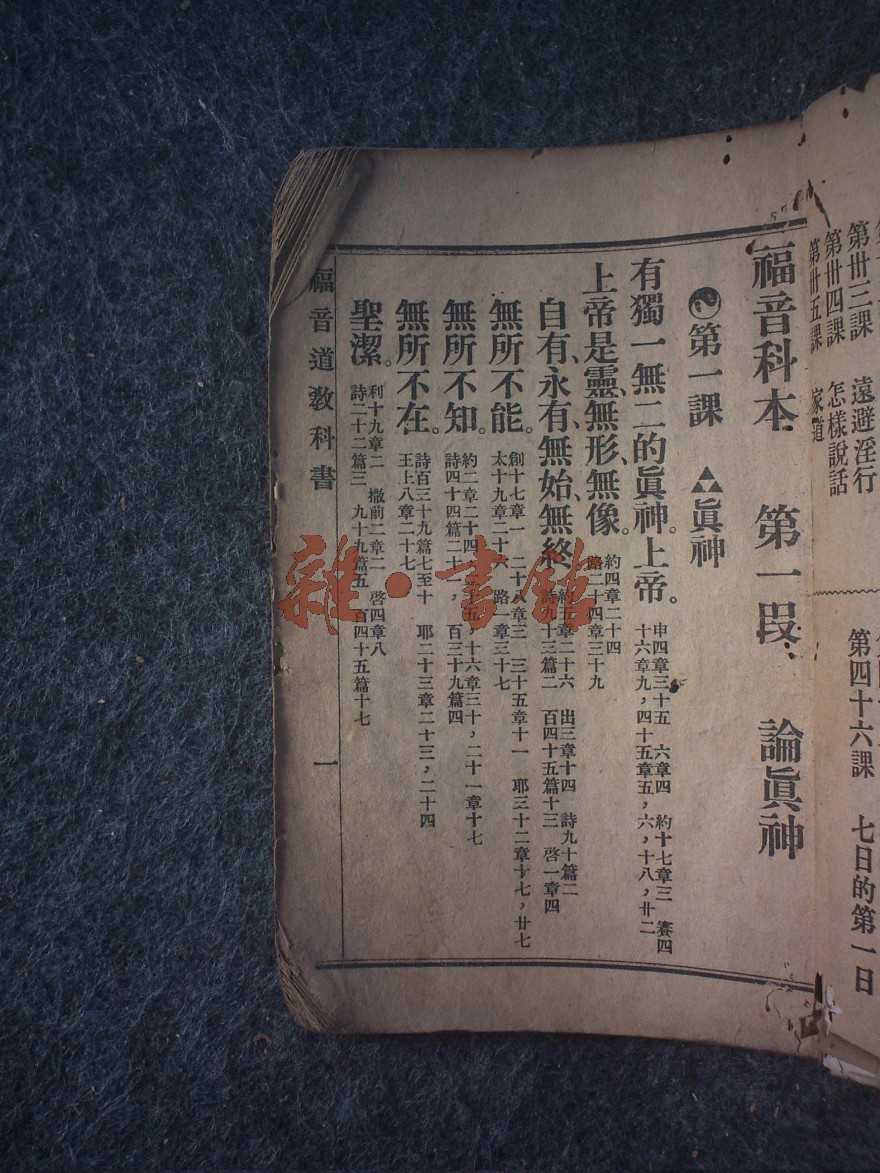 第卅三課 遠避淫行
第卅四課 怎樣說話
第卅五課 家道
第四十六課 七日的第一日
福音科本 第一段、 論眞神
第一課 眞神
有獨一無二的眞神。上帝。
申四章三十五 六章四 約十七章三 賽四
十六章九，四十五章五，六，十八，廿二
上帝是靈、無形、無像。
約四章二十四
路二十四章三十九
自有、永有、無始、無終。
約五章二十六 出三章十四 詩九十篇二
詩九十三篇二 百四十五篇十三 啓一章四
無所不能。
創十七章一 二十八章三 三十五章十一 耶三十二章十七，廿七
太十九章二十六 路一章三十七
無所不知。
約二章二十四，二十五，十六章三十，二十一章十七
詩四十四篇二十一， 百三十九篇四
無所不在。
詩百三十九篇七至十 耶二十三章二十三，二十四
王上八章二十七
聖潔。
利十九章二 撒前二章二 啓四章八
詩二十二篇三 九十九篇五 百四十五篇十七
福音道教科書 一
雜·書館